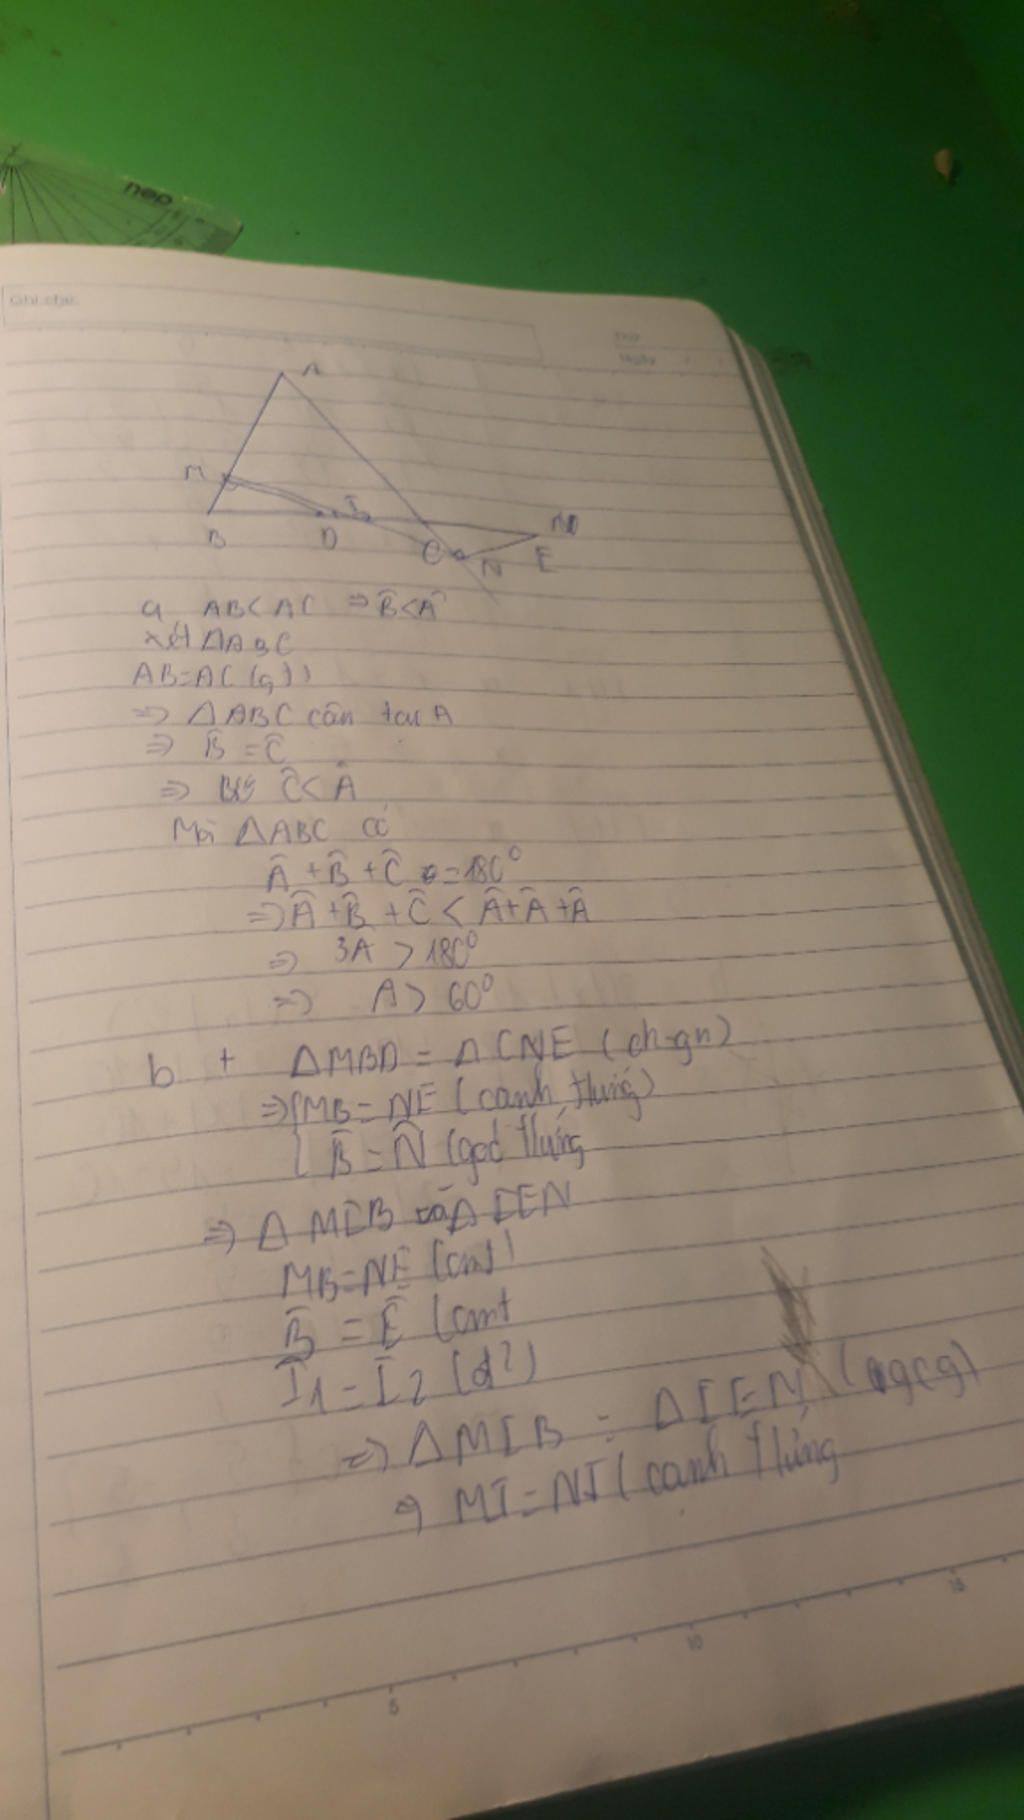 nep
Ghi chú
Thứ
Ngày
A
M
I
B
D
C
N
E
a AB< AC ⇒ B̂<Â
xét ΔABC
AB=AC (gt)
⇒ ΔABC cân tại A
⇒ B̂ = Ĉ
⇒ Ĉ< Â
Mà ΔABC có
Â +B̂ +Ĉ =180°
⇒Â +B̂ +Ĉ < Â+Â +Â
⇒ 3A > 180°
⇒ A > 60°
b + ΔMBD = ΔCNE (ch-gn)
⇒{MB = NE (canh tưng)
{ B̂ = N̂ (goc tưng
⇒ Δ MIB và Δ IEN
MB=NE (cmt)
B̂ = Ê (cmt
Î1 = Î2 (d²)
⇒ ΔMIB = ΔIEN (gcg)
⇒ MI=NI ( canh tưng
5
10
15